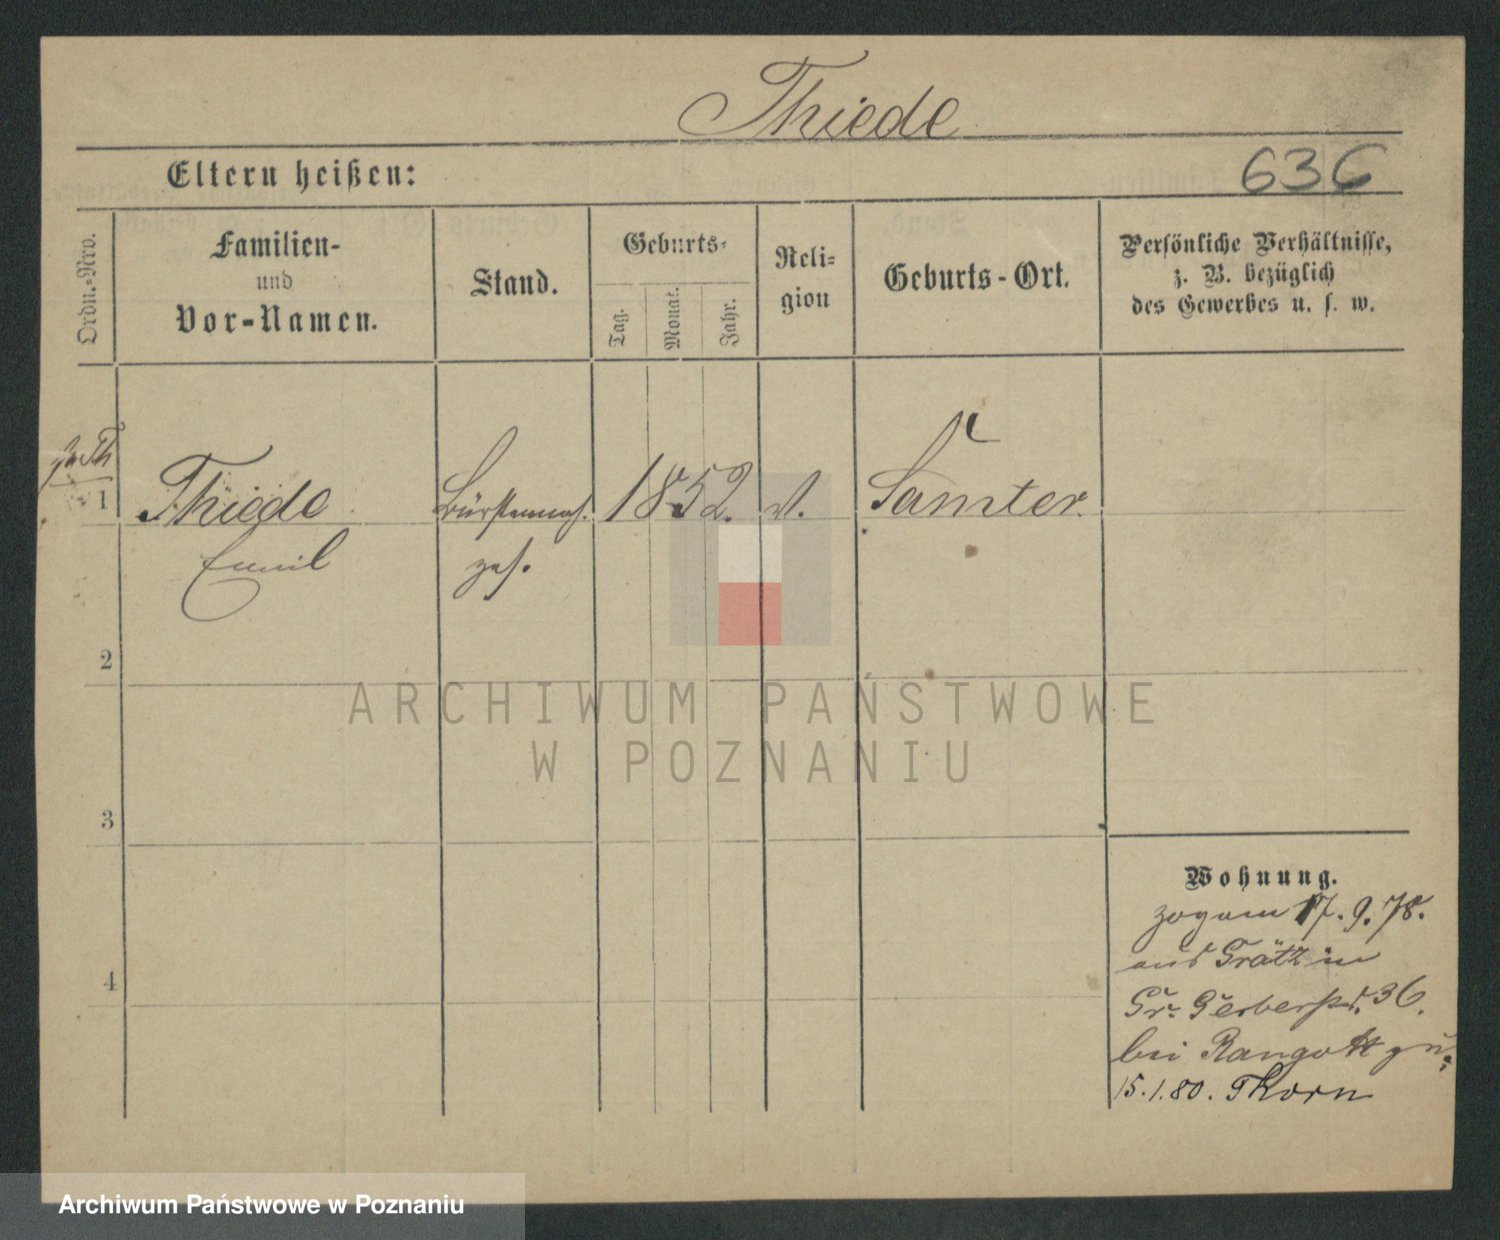 Thiede
Eltern heißen:
636
Ordn.-Nro.
Familien-
und
Vor-Namen.
Stand.
Geburts-
Tag.
Monat.
Jahr.
Reli-
gion
Geburts-Ort.
Persönliche Verhältnisse,
z. B. bezüglich
des Gewerbes u. s. w.
Th
1
Thiede
Emil
Bürstenmach.
ges.
1852.
Samter
2
3
4
Wohnung.
zog am 17. 9. 78.
aus Grätz in
Gr. Gerberstr. 36.
bei Rangott zu,
15. 1. 80. Thorn
ARCHIWUM PAŃSTWOWE
W POZNANIU
Archiwum Państwowe w Poznaniu